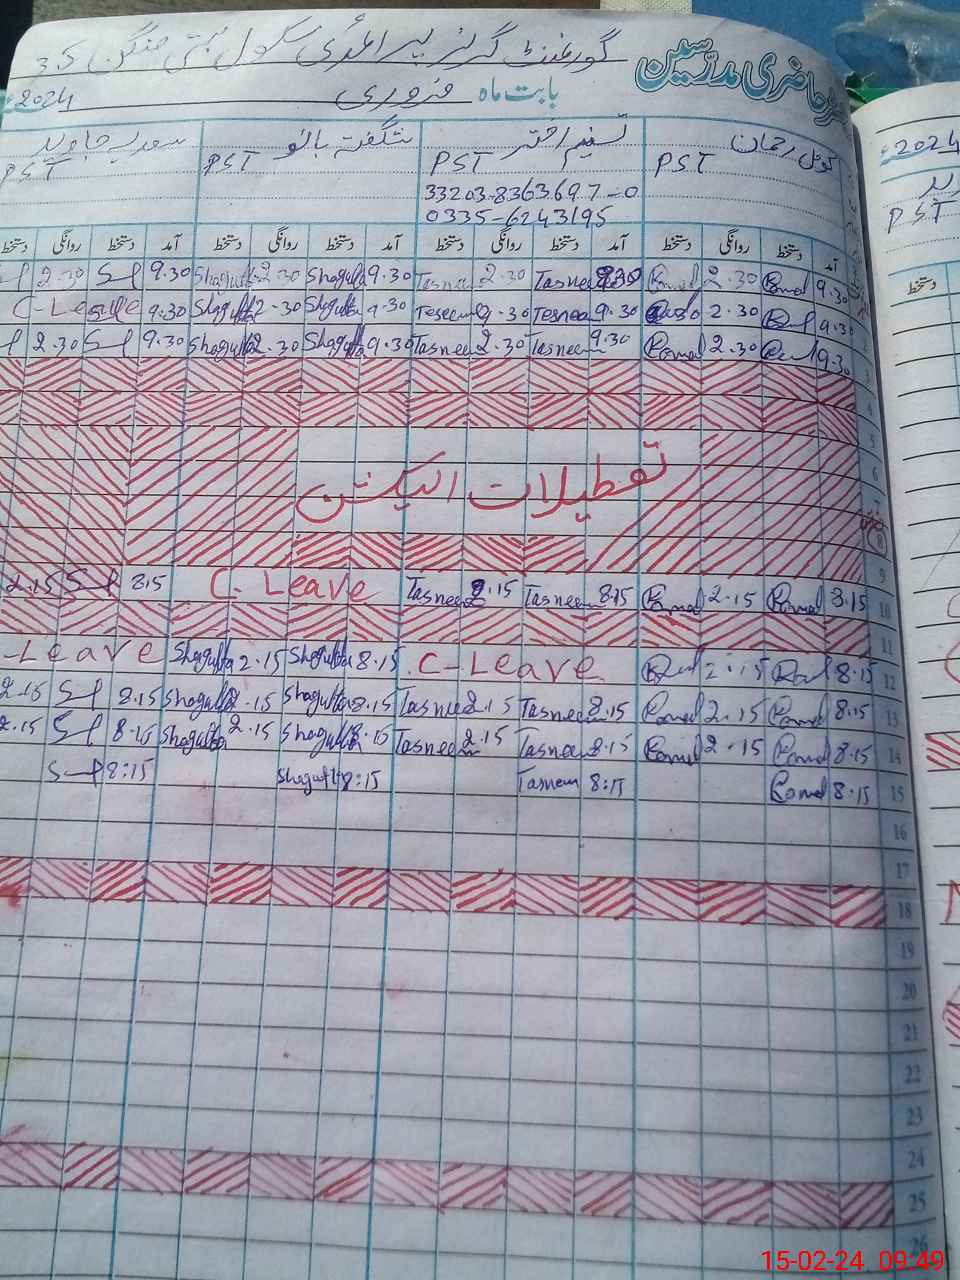 گورنمنٹ گرلز پرائمری سکول بستی
رجسٹر حاضری مدرسین
بابت ماہ فروری 2024ء
کومل رحمان تسنیم اختر شگفتہ بانو سعدیہ جاوید
PST PST PST PST
33203-8363697-0
0335-6243195
آمد دستخط روانگی دستخط آمد دستخط روانگی دستخط آمد دستخط روانگی دستخط آمد دستخط روانگی دستخط
2.30 9.30 Shagufta 2.30 Shagufta 9.30 Tasneem 2.30 Tasneem 9.30 Komal 2.30 Komal 9.30
C-Leave 9.30 Shagufta 2.30 Shagufta 9.30 Tasneem 2.30 Tasneem 9.30 2.30 9.30 2
2.30 9.30 Shagufta 2.30 Shagufta 9.30 Tasneem 2.30 Tasneem 9.30 Komal 2.30 9.30 3
4
5
تعطیلات الیکشن
6
7
8
9
2.15 8.15 C. Leave Tasneem 2.15 Tasneem 8.15 Komal 2.15 Komal 8.15 10
11
-Leave Shagufta 2.15 Shagufta 8.15 C-Leave 2.15 8.15 12
2.15 8.15 Shagufta 2.15 Shagufta 8.15 Tasneem 2.15 Tasneem 8.15 Komal 2.15 Komal 8.15 13
2.15 8.15 Shagufta 2.15 Shagufta 8.15 Tasneem 2.15 Tasneem 8.15 Komal 2.15 Komal 8.15 14
8:15 Shagufta 8:15 Tasneem 8:15 Komal 8.15 15
16
17
18
19
20
21
22
23
24
25
26
2024ء
PST
دستخط
15-02-24 09:49